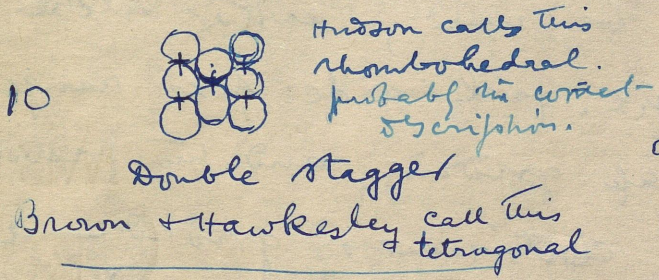 Hudson calls this
rhombohedral.
10
probably the correct
description.
Double stagger
Brown & Hawkesley call this
tetragonal